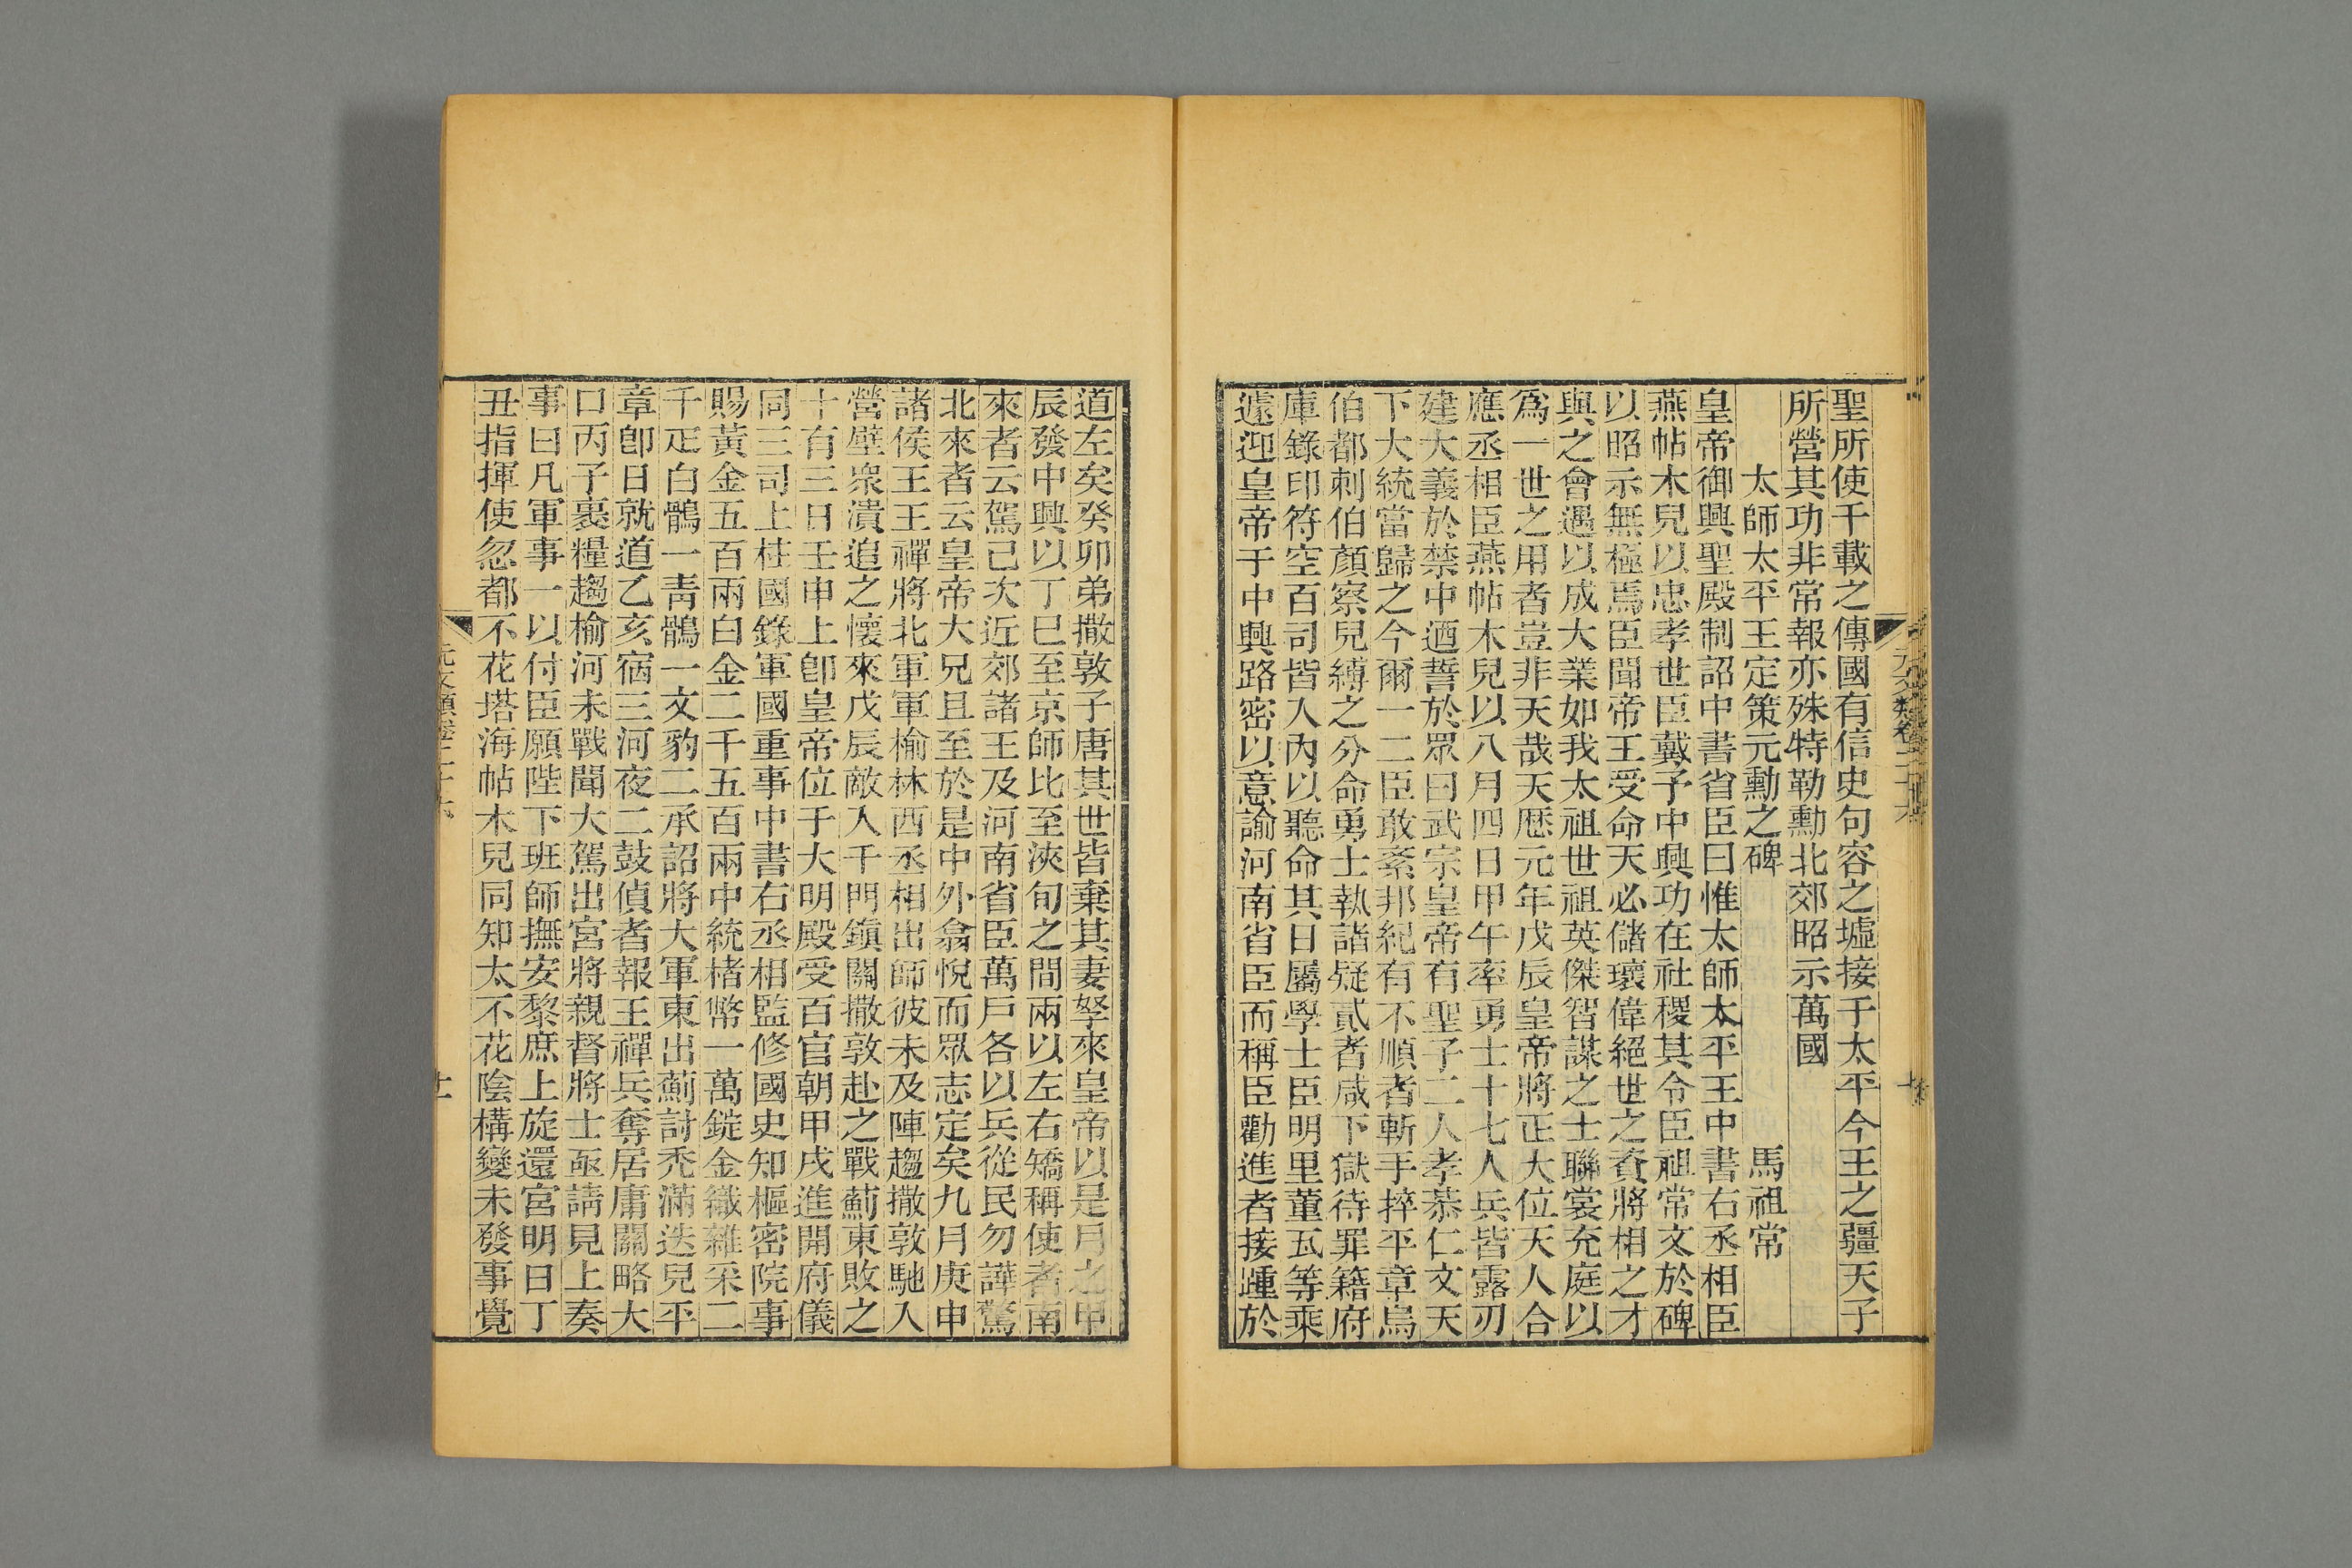 聖所使千載之傳國有信史句容之墟接于太平今王之疆天子
所營其功非常報亦殊特勒勳北郊昭示萬國
太師太平王定策元勳之碑
馬祖常
皇帝御興聖殿制詔中書省臣曰惟太師太平王中書右丞相臣
燕帖木兒以忠孝世臣戴予中興功在社稷其令臣祖常文於碑
以昭示無極焉臣聞帝王受命天必儲瓌偉絕世之資將相之才
與之會遇以成大業如我太祖世祖英傑智謀之士聯裳充庭以
爲一世之用者豈非天哉天歷元年戊辰皇帝將正大位天人合
應丞相臣燕帖木兒以八月四日甲午率勇士十七人兵皆露刃
建大義於禁中迺誓於眾曰武宗皇帝有聖子二人孝恭仁文天
下大統當歸之今爾一二臣敢紊邦紀有不順者斬手捽平章烏
伯都剌伯顏察兒縛之分命勇士執諸疑貳者咸下獄待罪籍府
庫錄印符空百司皆入內以聽命其日屬學士臣明里董瓦等乘
遽迎皇帝于中興路密以意諭河南省臣而稱臣勸進者接踵於
道左矣癸卯弟撒敦子唐其世皆棄其妻孥來皇帝以是月之甲
辰發中興以丁巳至京師比至浹旬之間兩以左右矯稱使者南
來者云駕已次近郊諸王及河南省臣萬戶各以兵從民勿譁驚
北來者云皇帝大兄且至於是中外翕悅而眾志定矣九月庚申
諸侯王王禪將北軍軍榆林西丞相出師彼未及陣趨撒敦馳入
營壁眾潰追之懷來戊辰敵入千門鎮關撒敦赴之戰薊東敗之
十有三日壬申上卽皇帝位于大明殿受百官朝甲戌進開府儀
同三司上柱國錄軍國重事中書右丞相監修國史知樞密院事
賜黃金五百兩白金二千五百兩中統楮幣一萬錠金織雜采二
千疋白鶻一靑鶻一文豹二承詔將大軍東出薊討禿滿迭兒平
章卽日就道乙亥宿三河夜二鼓偵者報王禪兵奪居庸關略大
口丙子裹糧趨榆河未戰聞大駕出宮將親督將士亟請見上奏
事曰凡軍事一以付臣願陛下班師撫安黎庶上旋還宮明日丁
丑指揮使忽都不花塔海帖木兒同知太不花陰構變未發事覺